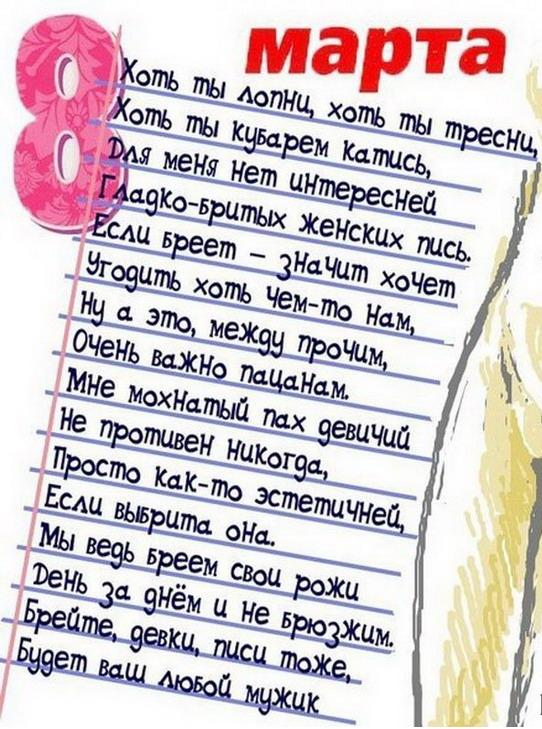 8 марта
Хоть ты лопни, хоть ты тресни,
Хоть ты кубарем катись,
Для меня нет интересней
Гладко-бритых женских пись.
Если бреет – значит хочет
Угодить хоть чем-то нам,
Ну а это, между прочим,
Очень важно пацанам.
Мне мохнатый пах девичий
Не противен никогда,
Просто как-то эстетичней,
Если выбрита она.
Мы ведь бреем свои рожи
День за днём и не брюзжим.
Брейте, девки, писи тоже,
Будет ваш любой мужик